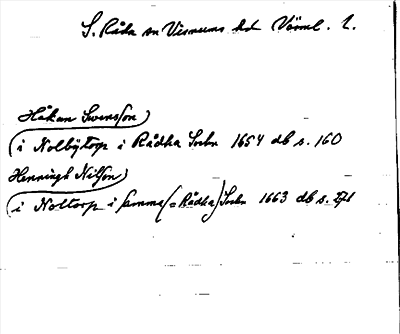 S. Råda sn Visnums hd Värml. l.
Håkan Swensson
i Nolbÿtorp i Rådha Sochn 1654 db s. 160
Henningh Nilson
i Noltorp i samma (= Rådha) Sochn 1663 db s. 271